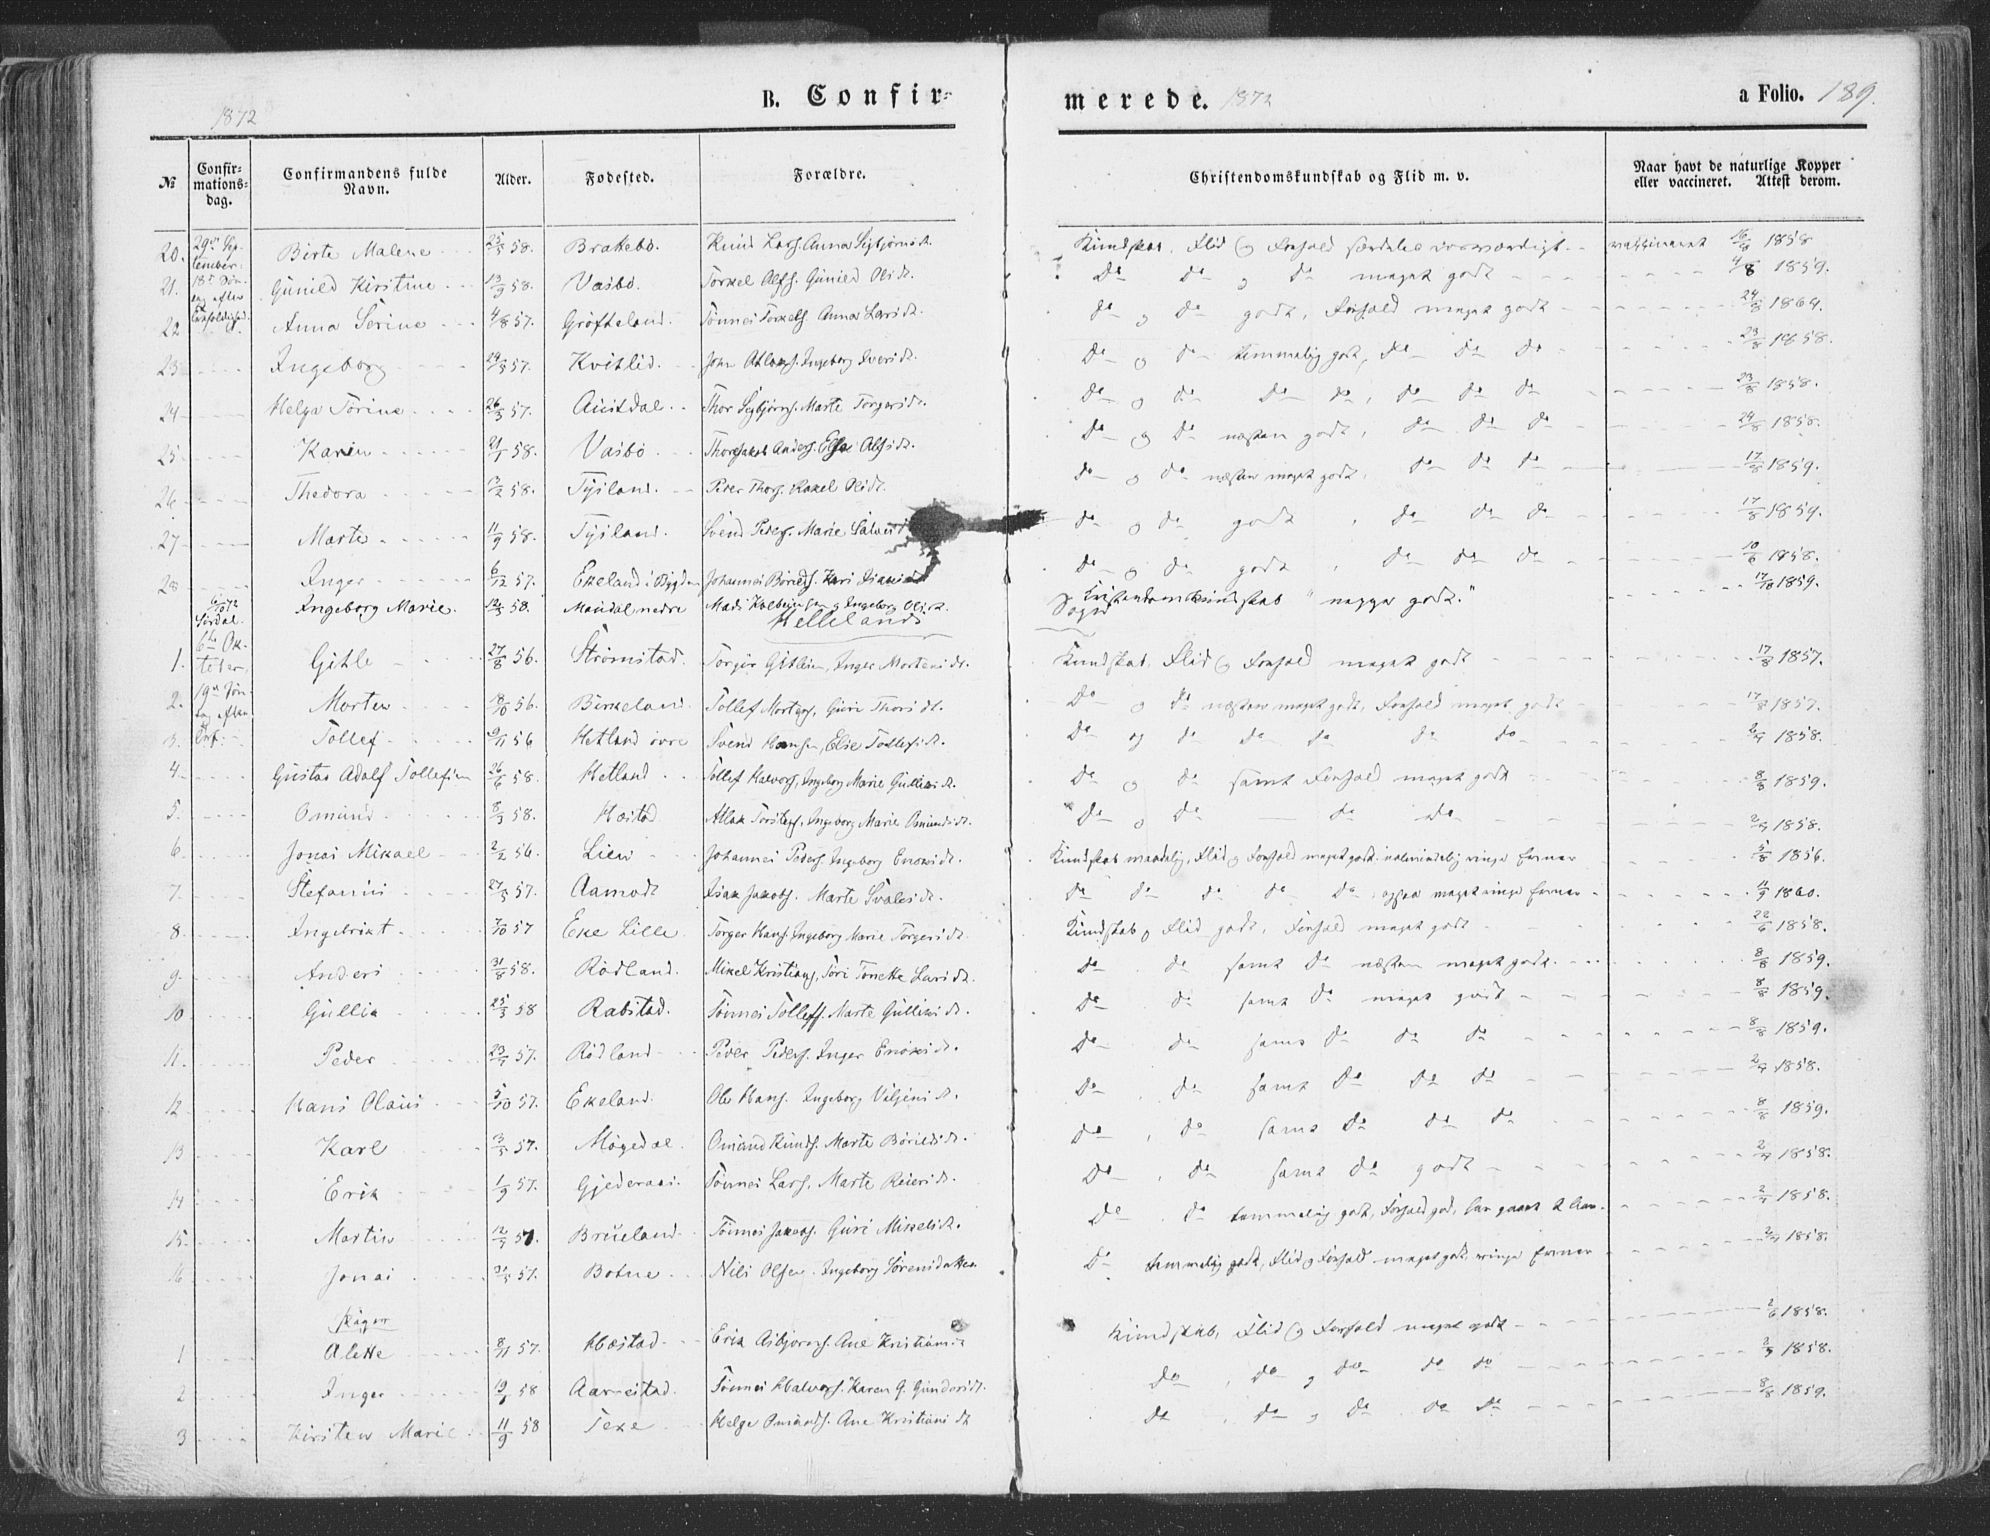 1872 B. Confir-
merede. 1872 a Folio. 189.
№ Confir-mations-dag. Confirmandens fulde Navn. Alder. Fødested. Forældre. Christendomskundskab og Flid m. v. Naar havt de naturlige Kopper eller vaccineret. Attest derom.
20. 29de Sep-tember. Birte Malene 25/5 58. Brakebø. Knud Lars. Anna Sigbjørnsdt. Kundskab, Flid og Forhold særdeles vaccineret 16/8 1858
21. 18de Søn- Gunild Kirstine 13/3 58. Vasbø. Torkel Olss. Gunild Olsdt. Do Do og do meget godt 4/8 1859.
22 dag efter Anna Serine 4/8 57. Grøfteland. Tønnes Torkels. Anna Larsdt. do og do godt, Forhold meget godt 24/8 1864.
23 Ingeborg 24/5 57. Kvitlid. John Atlaks. Ingeborg Iversdt. Do og do temmelig godt, do do do 23/8 1858.
24 Helga Torine 26/3 57. Austdal. Thor Sigbjørns. Marte Torgersdt. Do og do Do do, do do do 23/8 1858.
25 Karen 21/1 58. Vasbø Anders. Else do og do næsten godt, do do do 24/8 1858.
26 Thedora 3/2 58. Tysland. Peder Thors. Rakel Olsdt. do og do næsten meget godt, do do do 17/8 1859.
27 Marte 11/9 58. Tysland. Svend Peders. Marie do og do godt, do do do 17/8 1859.
28 Inger 6/12 57. Ekeland i Bygden Johannes Børilds. Kari do og do godt, do do do 10/6 1858.
6/10 72 Ingeborg Marie. 58. Maudal nedre Mads og Ingeborg Olsdt. Kristendomskundskab "meget godt." 17/10 1859.
Hellelands Sogn
1. 6te Ok-tober Gitle 27/8 56. Strømstad. Torger Gitlesen, Inger Mortensdt. Kundskab, Flid og Forhold meget godt 17/8 1857.
2. 19de Søn- Morten 8/10 56. Birkeland. Tollef Mortens. Guri Thorsdt. Do og do næsten meget godt, Forhold meget godt 17/8 1857.
3. Tollef 9/11 56 Hetland øvre Svend Hansen, Elie Tollefsdt. Do og do do do do do 2/7 1858.
4. Gustav Adolf Tollefsen 26/6 58. Hetland Tollef Halvors. Ingeborg Marie Gulliksdt. Do og do samt Forhold meget godt 8/8 1859.
5. Omund 8/3 58. Hæstad Atlak Torstens. Ingeborg Marie Omundsdt. Do og do do do 2/7 1858.
6. Jonas Mikael 2/2 56. Lien Johannes Peders. Ingeborg Enoksdt. Kundskab maadelig, Flid og Forhold meget godt ringe Evner 5/8 1856.
7. Stefanus 27/5 57. Aamodt Isak Jakobs. Marte Svalesdt. do do do do do, ogsaa meget ringe Evner 11/9 1860.
8. Ingebrikt 7/10 57 Eke Lille Torger Hans. Ingeborg Marie Torgersdt. Kundskab og Flid godt, Forhold meget godt 22/6 1858.
9. Anders 31/8 58. Rødland. Mikel Kristians. Tori Tonette Larsdt. do do samt Do næsten meget godt 8/8 1859.
10 Gullik 25/3 58 Rabstad. Tønnes Tollefs. Marte Gulliksdt. Do do samt do meget godt 8/8 1859.
11. Peder 23/7 57. Rødland Peder Peders. Inger Enoksdt. Do do samt do do do 8/8 1859.
12 Hans Olaus 5/10 57. Ekeland. Ole Hans. Ingeborg Do, do samt Do do do 2/7 1858.
13 Karl 3/5 57. Mogedal. Omund Knuds. Marte Børildsdt. do, do samt do do do 8/8 1859.
14 Erik 1/9 57. Gjederaas. Tønnes Lars. Marte Reiersdt. Do, do samt do godt 2/7 1858.
15. Martin 12/7 57. Brueland Tønnes Jakobs. Guri Mikelsdt. Do, do temmelig godt, Forhold god, 2/7 1858.
16 Jonas 31/5 57. Botne Nils Olsen. Ingeborg Sørensdatter Do temmelig godt, Flid og Forhold meget godt, ringe Evner 2/7 1858.
Piger
1 Alette 8/11 57. Hæstad Erik Asbjørns. Ane Kristiansdt Kundskab, Flid og Forhold meget godt 2/6 1858.
2 Inger 58 Aarrestad. Tønnes Halvors. Karen G. Gundersdt. Do, do og do do do 2/7 1858.
3 Kirsten Marie 11/9 58 Texe Helge Omunds. Ane Kristiansdt do, do og do do do 8/8 1859.